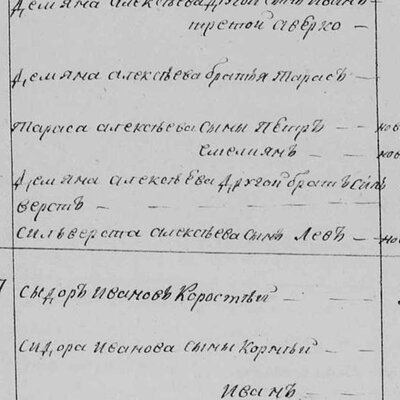 Демяна алексѣева другой сынъ Иванъ
третой аверко
Демяна алексѣева братья тарасъ
тараса алексѣева сыны Пётръ нов
емелиянъ нов
Демяна алексѣева Другой братъ Силь
верстъ
сильверста алексѣева сынъ Левъ нов
7
сыдоръ Ивановъ Коростѣй
сидора Иванова сыны Корнѣй
Иванъ